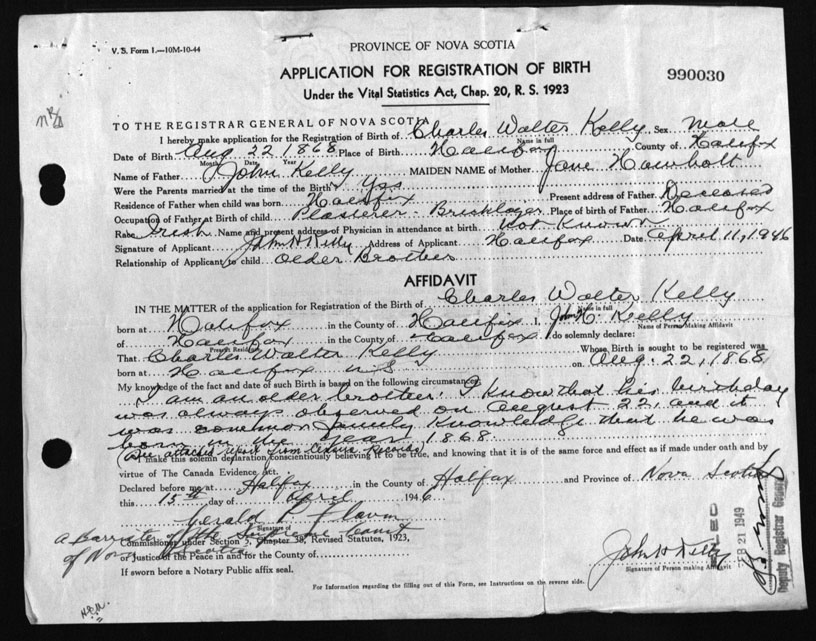 V. S. Form 1.—10M-10-44
PROVINCE OF NOVA SCOTIA
APPLICATION FOR REGISTRATION OF BIRTH
990030
Under the Vital Statistics Act, Chap. 20, R. S. 1923
TO THE REGISTRAR GENERAL OF NOVA SCOTIA
I hereby make application for the Registration of Birth of Charles Walter Kelly Sex Male
Name in full
Date of Birth Aug 22 1868 Place of Birth Halifax County of Halifax
Month Date Year
Name of Father John Kelly MAIDEN NAME of Mother Jane
Were the Parents married at the time of the Birth Yes
Residence of Father when child was born Halifax Present address of Father Deceased
Occupation of Father at Birth of child Plasterer - Bricklayer Place of birth of Father Halifax
Irish Name and present address of Physician in attendance at birth Not Known
Signature of Applicant John H Kelly Address of Applicant Halifax Date April 11, 1946
Relationship of Applicant to child Older Brother
AFFIDAVIT
IN THE MATTER of the application for Registration of the Birth of Charles Walter Kelly
Name in full
born at Halifax in the County of Halifax I, John H. Kelly
Name of Person Making Affidavit
of Halifax in the County of Halifax do solemnly declare:
Present Residence
That Charles Walter Kelly Whose Birth is sought to be registered was
born at Halifax N.S. on Aug. 22, 1868
My knowledge of the fact and date of such Birth is based on the following circumstances
I am an older brother. I know that his birthday
was always observed on August 22, and it
was common family knowledge that he was
born in the year 1868.
(See attached report from Census Records)
I make this solemn declaration conscientiously believing it to be true, and knowing that it is of the same force and effect as if made under oath and by
virtue of The Canada Evidence Act.
Declared before me at Halifax in the County of Halifax and Province of Nova Scotia
this 15th day of April 1946
Gerald P. Flavin
Signature of
A Barrister of the Supreme Court
Commissioner under Section 3, Chapter 38, Revised Statutes, 1923,
of Nova Scotia
or Justice of the Peace in and for the County of
If sworn before a Notary Public affix seal.
John H Kelly
Signature of Person making Affidavit
FEB 21 1949
Deputy Registrar General
For Information regarding the filling out of this Form, see Instructions on the reverse side.